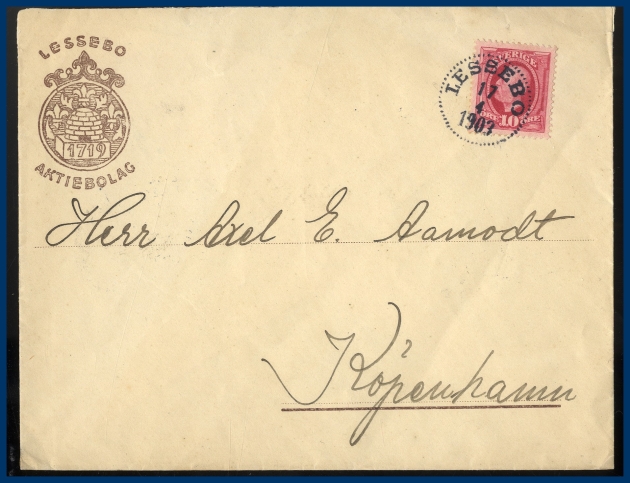 LESSEBO
1719
AKTIEBOLAG
SVERIGE
10 ÖRE
LESSEBO
17
4
1903
Herr Axel E. Aamodt
Köpenhamn